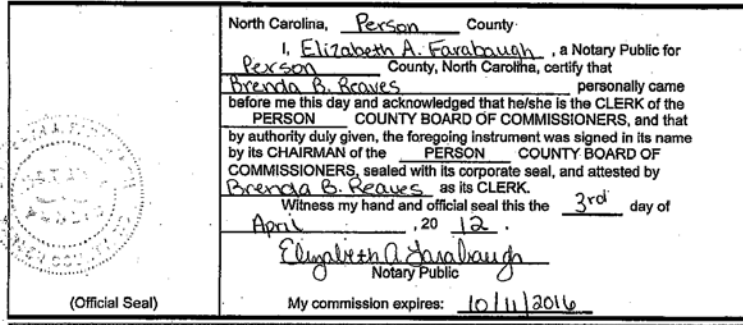 North Carolina, Person County
I, Elizabeth A. Farabaugh, a Notary Public for
Person County, North Carolina, certify that
Brenda B. Reaves personally came
before me this day and acknowledged that he/she is the CLERK of the
PERSON COUNTY BOARD OF COMMISSIONERS, and that
by authority duly given, the foregoing instrument was signed in its name
by its CHAIRMAN of the PERSON COUNTY BOARD OF
COMMISSIONERS, sealed with its corporate seal, and attested by
Brenda B. Reaves as its CLERK.
Witness my hand and official seal this the 3rd day of
April, 20 12.
Elizabeth A Farabaugh
Notary Public
(Official Seal)
My commission expires: 10/11/2016